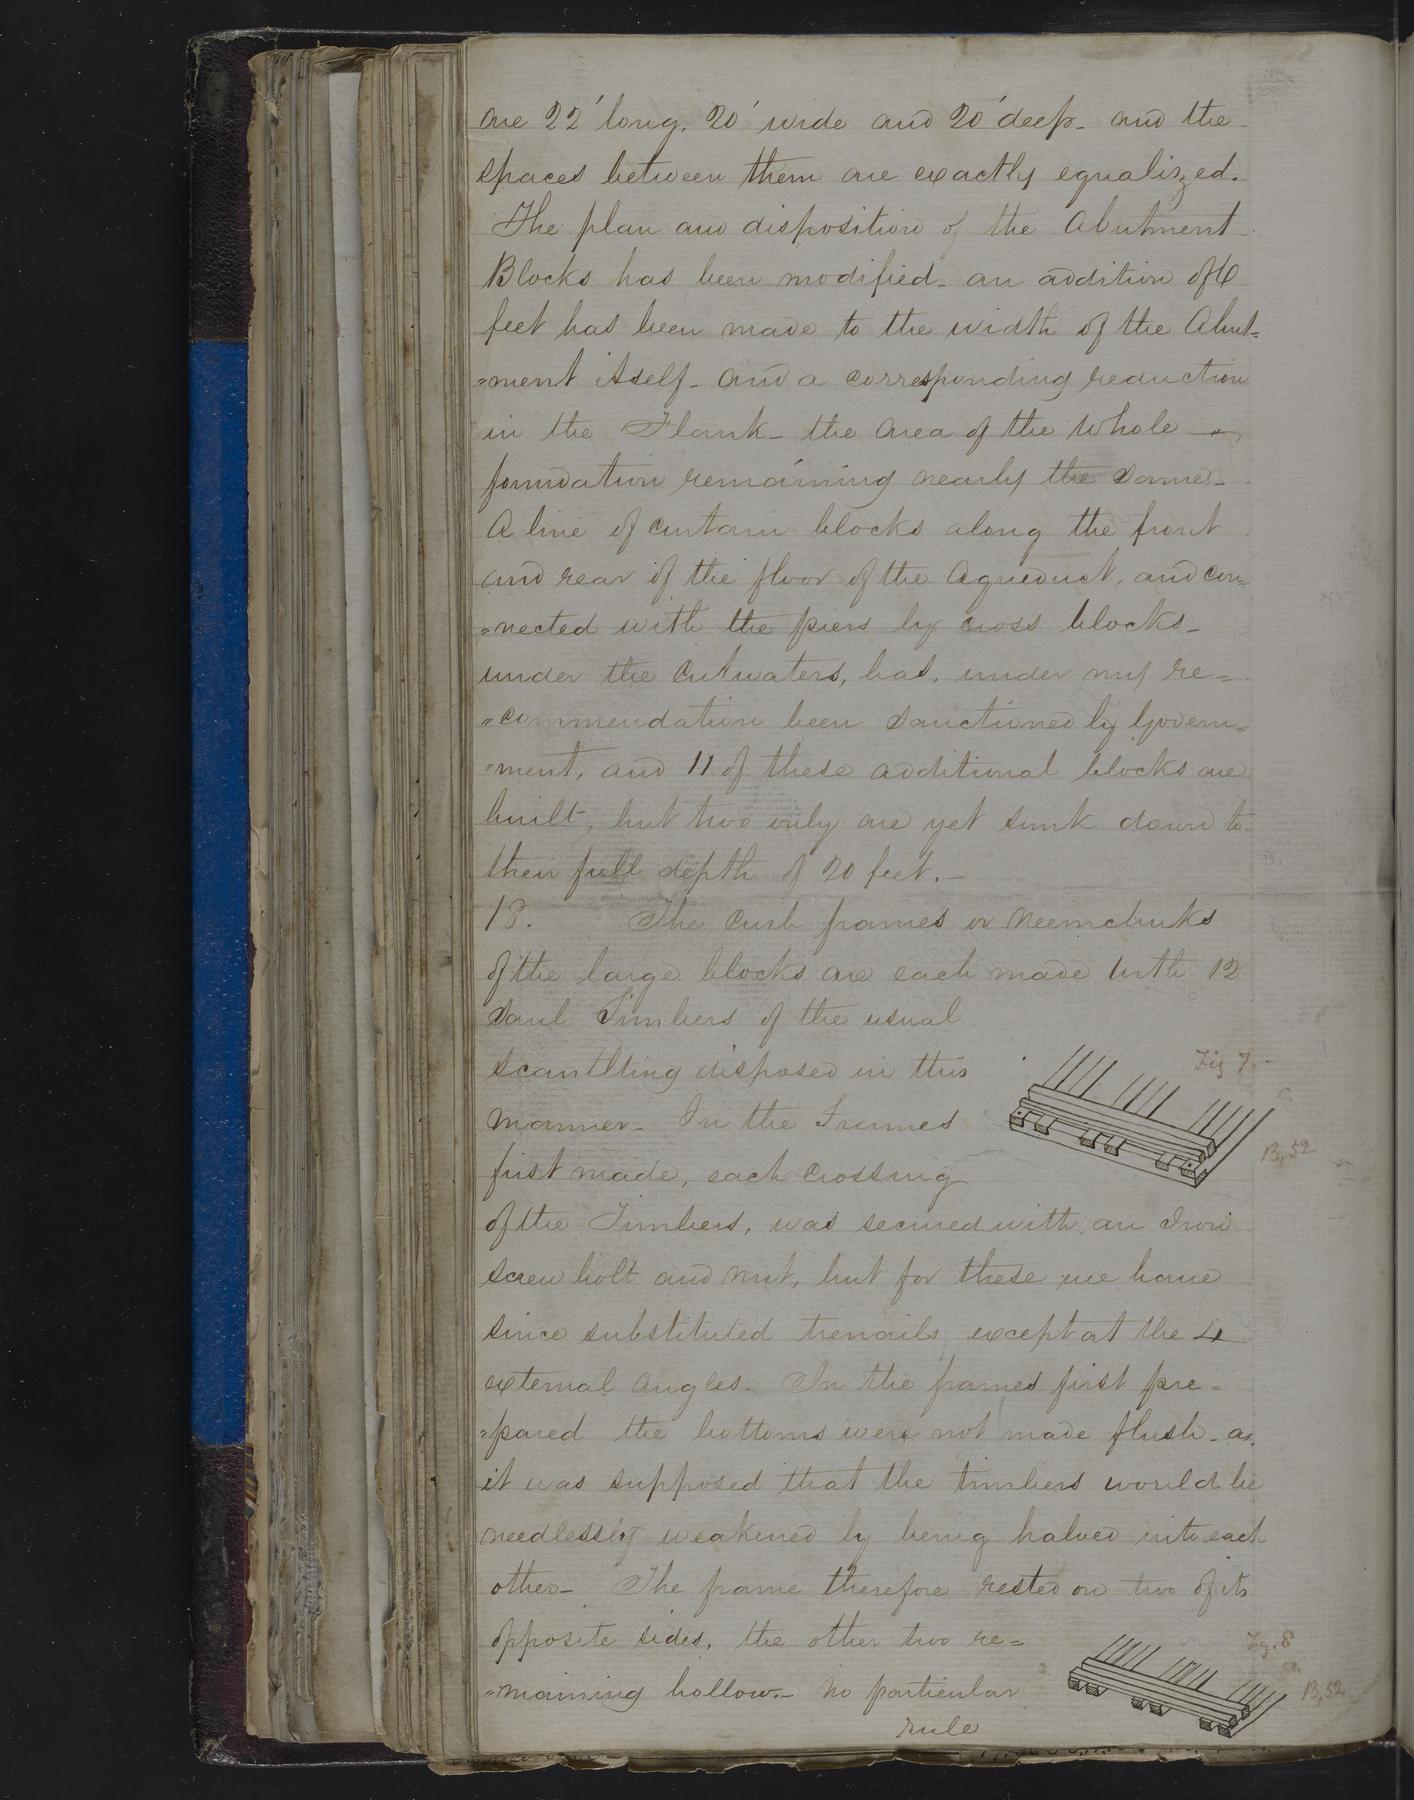 are 22' long, 20' wide and 20' deep - and the
spaces between them are exactly equalized.
The plan and disposition of the Abutment
Blocks has been modified - an addition of 6
feet has been made to the width of the Abut=
=ment itself - and a corresponding reduction
in the Flank - the area of the whole
foundation remaining nearly the same -
A line of curtain blocks along the front
and rear of the floor of the Aqueduct, and con=
=nected with the piers by cross blocks -
under the Cutwaters, has, under my re=
=commendation been sanctioned by Govern=
=ment, and 11 of these additional blocks are
built, but two only are yet sunk down to
their full depth of 20 feet. -
18. The Curb frames or Neemchuks
of the large blocks are each made with 12
Saul Timbers of the usual
scantlting disposed in this
manner - In the Frames
first made, each crossing
of the Timbers, was secured with an Iron
screw bolt and nut, but for these we have
since substituted trenails except at the 4
external angles. In the frames first pre=
=pared the bottoms were not made flush - as
it was supposed that the timbers would be
needlessly weakened by being halved into each
other - The frame therefore rested on two of its
opposite sides, the other two re=
=maining hollow. - No particular
rule
Fig 7.
B, 52
Fig. 8
B, 52